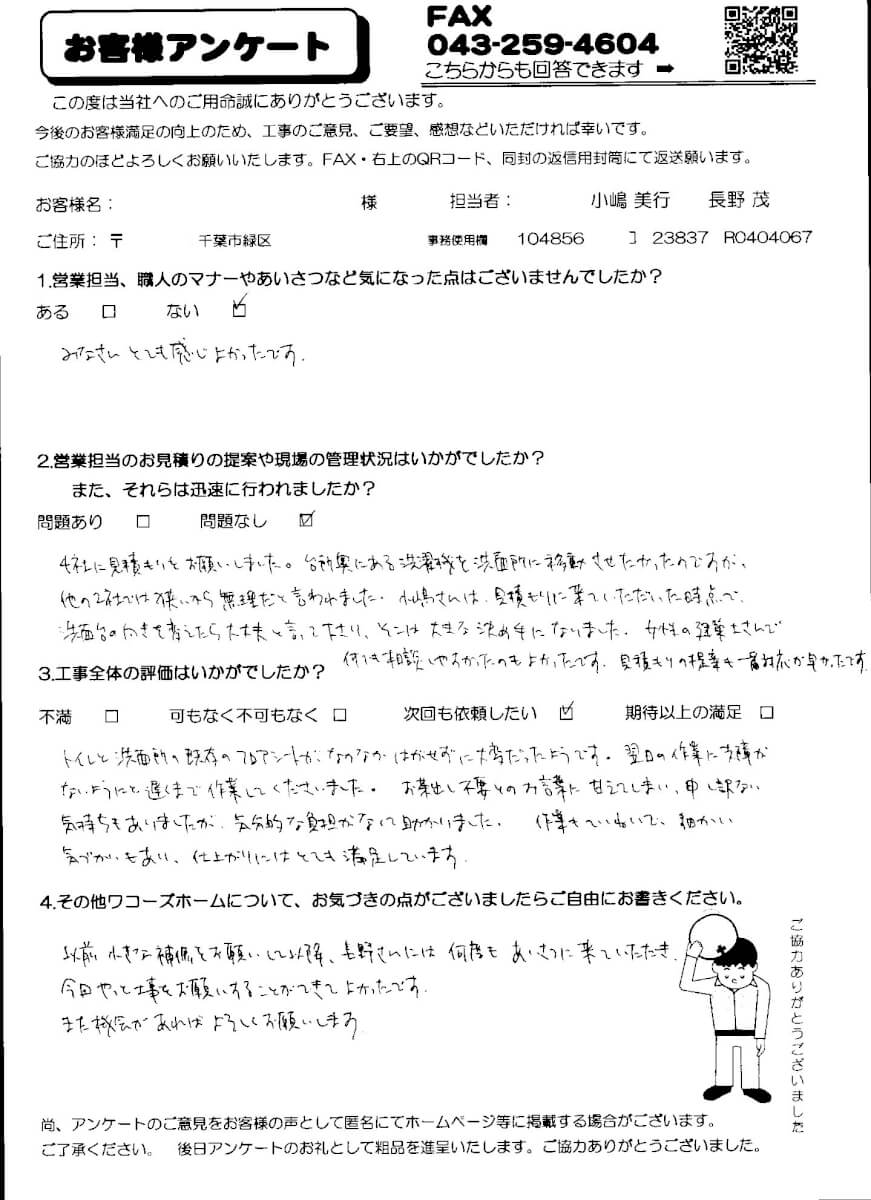 お客様アンケート
FAX
043-259-4604
こちらからも回答できます ➡
この度は当社へのご用命誠にありがとうございます。
今後のお客様満足の向上のため、工事のご意見、ご要望、感想などいただければ幸いです。
ご協力のほどよろしくお願いいたします。FAX・右上のQRコード、同封の返信用封筒にて返送願います。
お客様名： 様 担当者： 小嶋 美行 長野 茂
ご住所：〒 千葉市緑区 事務使用欄 104856 23837 R0404067
1.営業担当、職人のマナーやあいさつなど気になった点はございませんでしたか？
ある □ ない ☑
みなさん とても感じよかったです.
2.営業担当のお見積りの提案や現場の管理状況はいかがでしたか？
また、それらは迅速に行われましたか？
問題あり □ 問題なし ☑
4社に見積もりをお願いしました。台所奥にある洗濯機を洗面所に移動させたかったのですが、
他の2社では狭いから無理だと言われました. 小嶋さんは、見積もりに来ていただいた時点で、
洗面台の向きを変えたら大丈夫と言って下さり、そこは大きな決め手になりました. 女性の建築士さんで
何でも相談しやすかったのもよかったです. 見積もりの提案も一番対応が早かったです
3.工事全体の評価はいかがでしたか？
不満 □ 可もなく不可もなく □ 次回も依頼したい ☑ 期待以上の満足 □
トイレと洗面所の既存のフロアシートが、なかなかはがせずに大変だったようです。翌日の作業に支障が
ないようにと遅くまで作業してくださいました。 お茶出し不要とのお言葉に甘えてしまい、申し訳ない
気持ちもありましたが、気分的な負担がなくて助かりました. 作業もていねいで、細かい
気づかいもあり、仕上がりにはとても満足しています.
4.その他ワコーズホームについて、お気づきの点がございましたらご自由にお書きください。
以前 小さな補修をお願いして以降、長野さんには 何度も あいさつに来ていただき.
今回やっと工事をお願いすることができてよかったです.
また機会があれば よろしくお願いします
ご協力ありがとうございました
尚、アンケートのご意見をお客様の声として匿名にてホームページ等に掲載する場合がございます。
ご了承ください。 後日アンケートのお礼として粗品を進呈いたします。ご協力ありがとうございました。